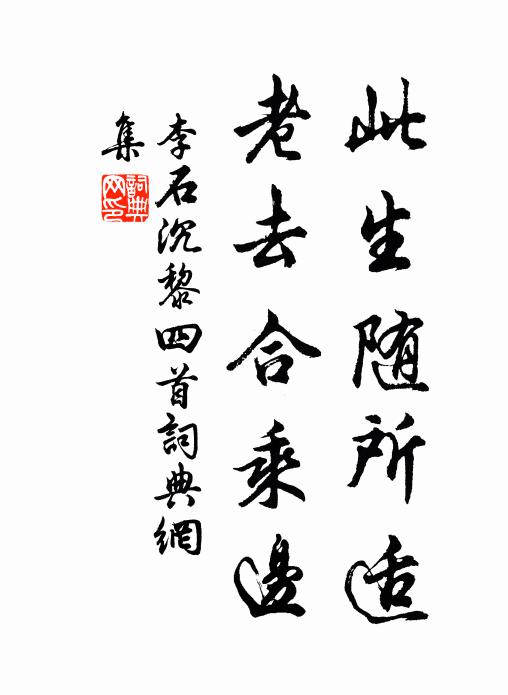 此生随所适
老去合乘邊
李石沉黎四首詞典網
集
詞典
网印